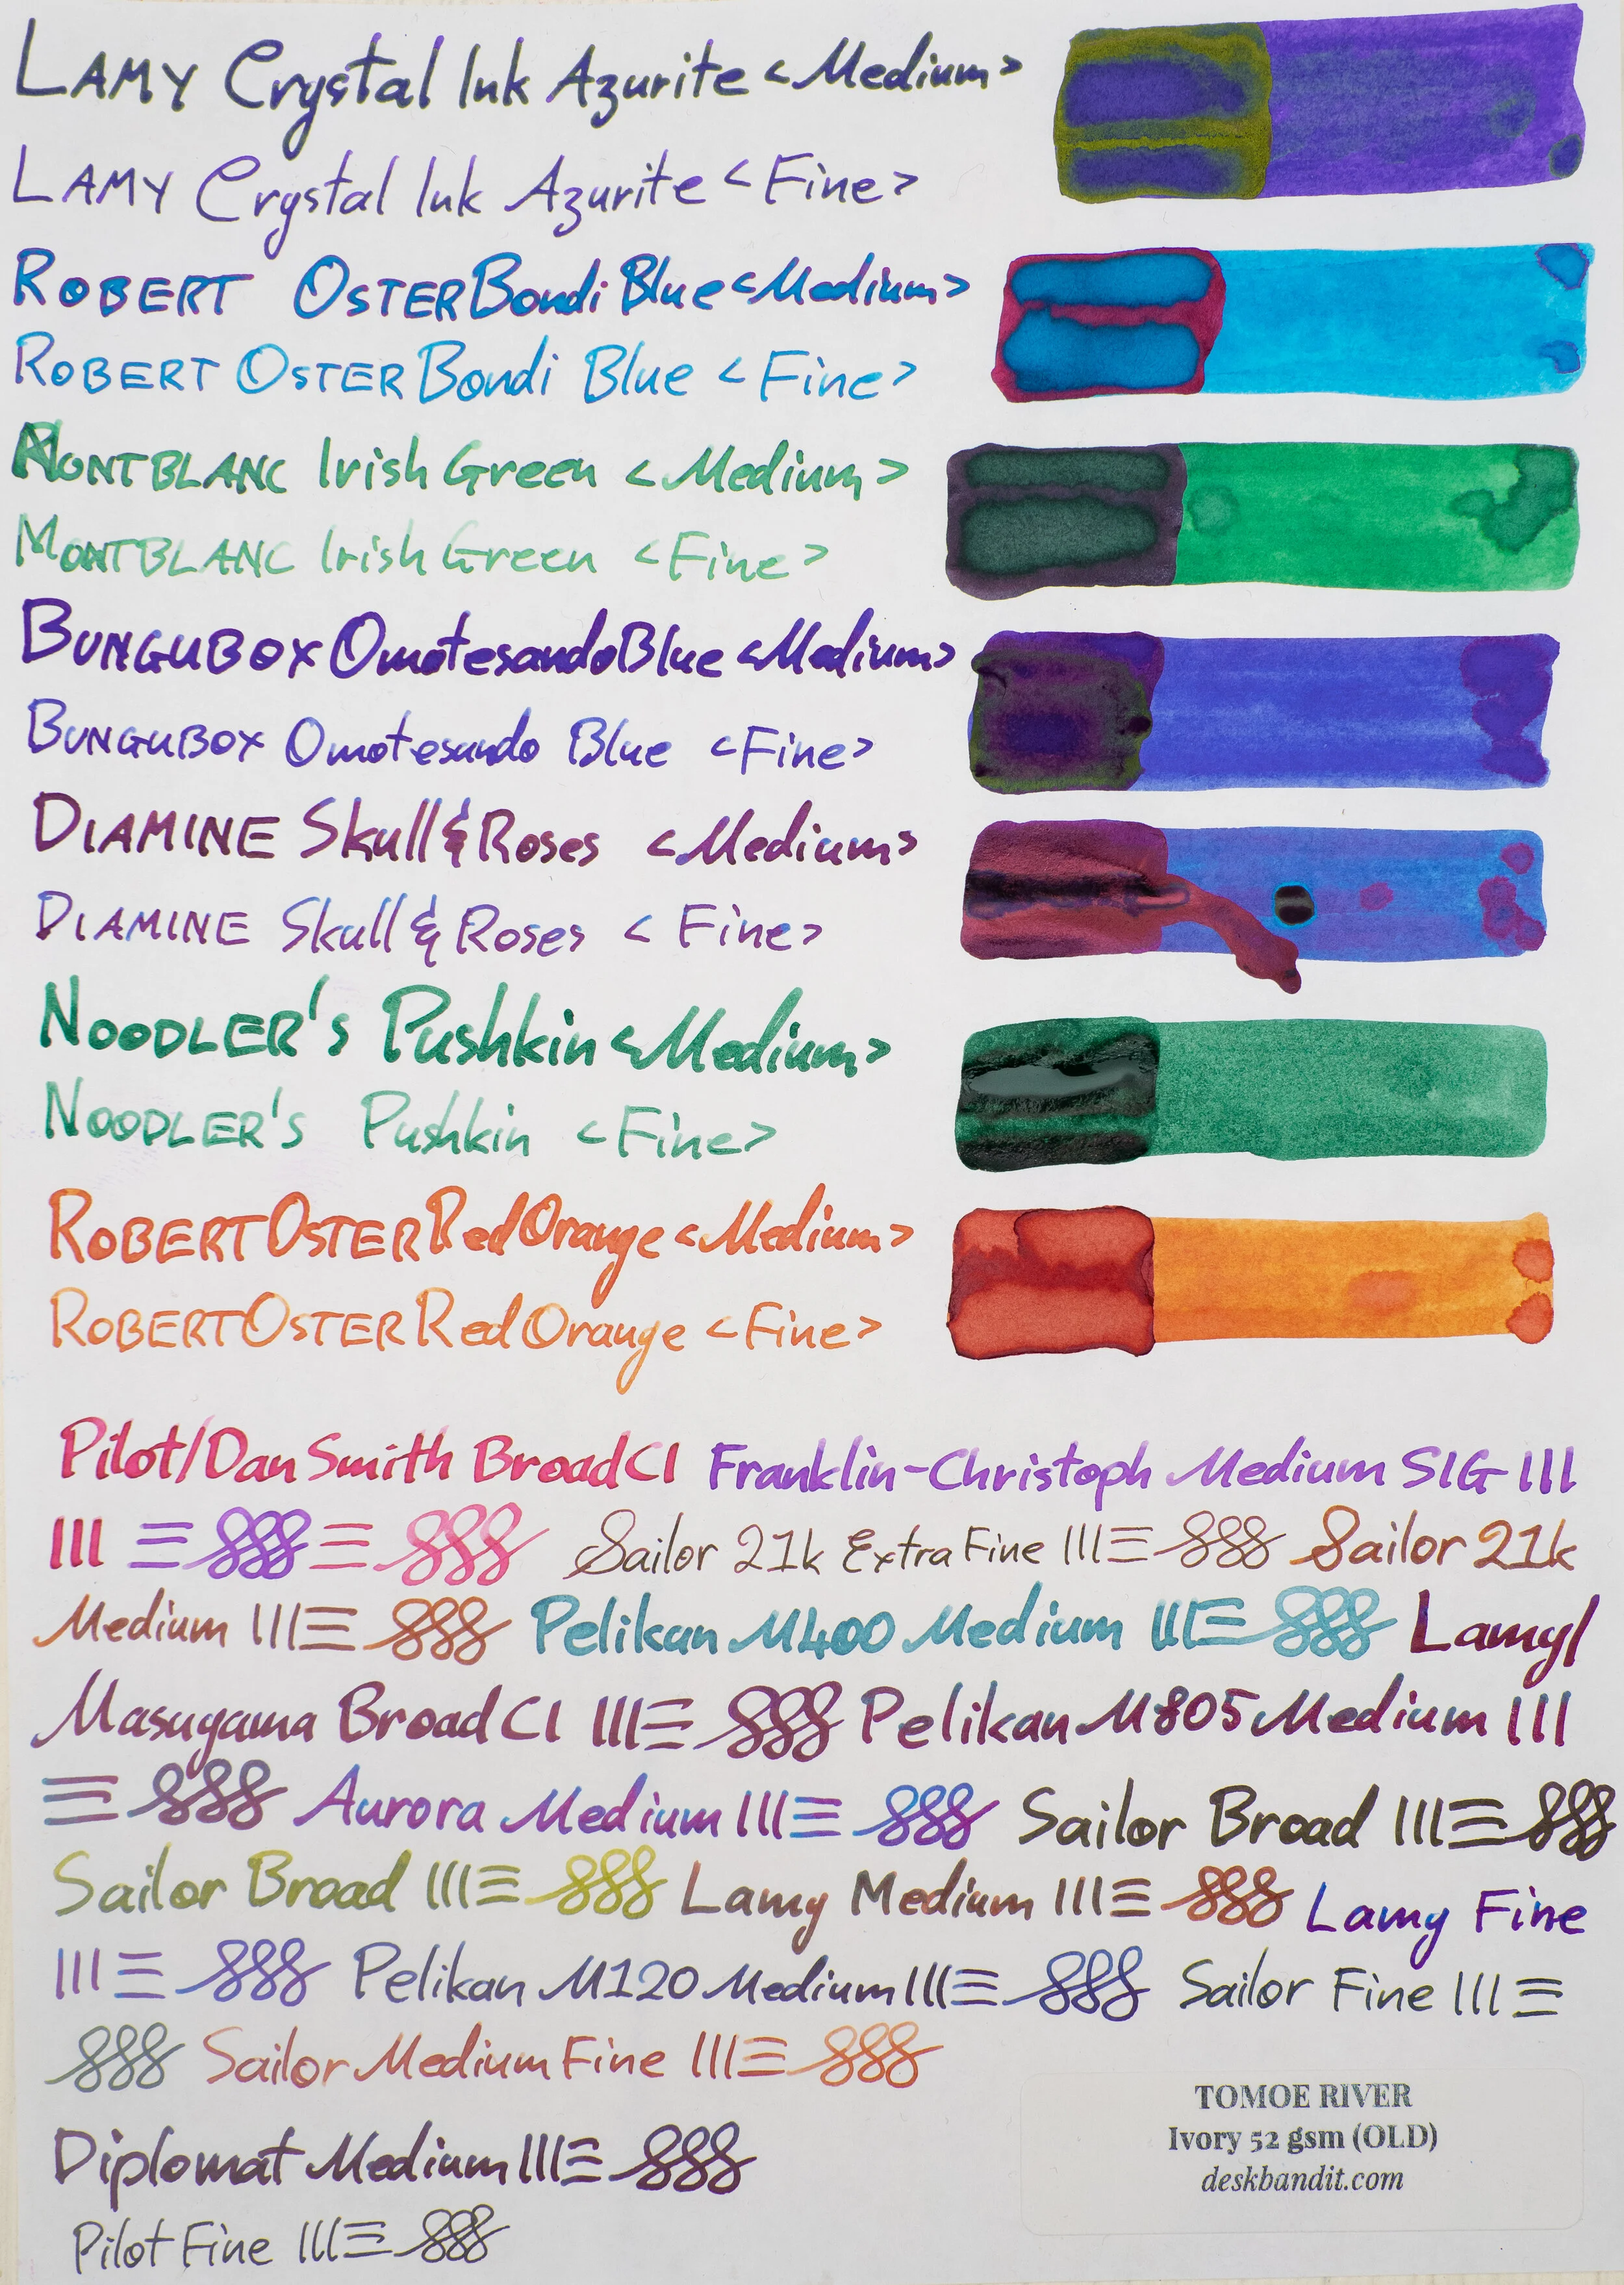 LAMY Crystal Ink Azurite <Medium>
LAMY Crystal Ink Azurite <Fine>
ROBERT OSTER Bondi Blue <Medium>
ROBERT OSTER Bondi Blue <Fine>
MONTBLANC Irish Green <Medium>
MONTBLANC Irish Green <Fine>
BUNGUBOX Omotesando Blue <Medium>
BUNGUBOX Omotesando Blue <Fine>
DIAMINE Skull & Roses <Medium>
DIAMINE Skull & Roses <Fine>
NOODLER's Pushkin <Medium>
NOODLER's Pushkin <Fine>
ROBERT OSTER Red Orange <Medium>
ROBERT OSTER Red Orange <Fine>
Pilot/Dan Smith Broad CI Franklin-Christoph Medium SIG
Sailor 21k Extra Fine Sailor 21k
Medium Pelikan M400 Medium Lamy/
Masuyama Broad CI Pelikan M805 Medium
Aurora Medium Sailor Broad
Sailor Broad Lamy Medium Lamy Fine
Pelikan M120 Medium Sailor Fine
Sailor Medium Fine
Diplomat Medium
Pilot Fine
TOMOE RIVER
Ivory 52 gsm (OLD)
deskbandit.com